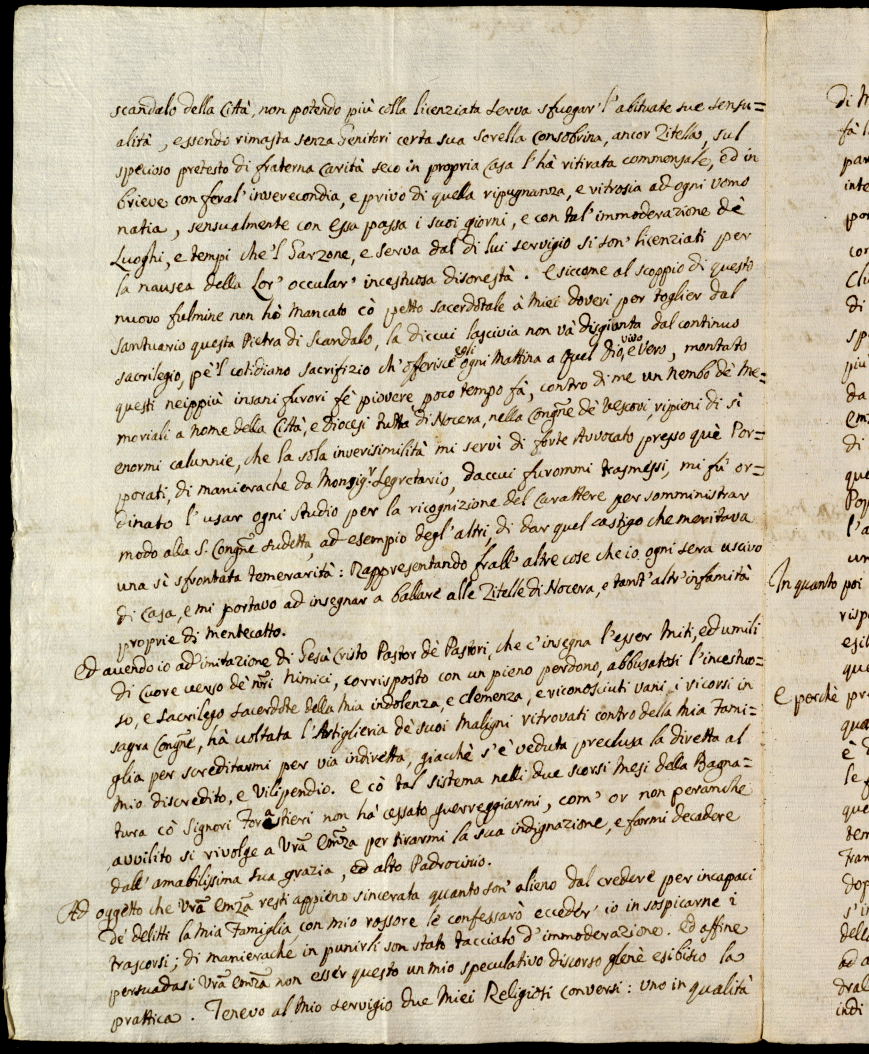 scandalo della Città, non potendo più colla licenziata serva sfuogar' l'abituate sue sensu=
alità, essendo rimasta senza Genitori certa sua sorella Consobrina, ancor Zitella, sul
specioso pretesto di fraterna Carità seco in propria Casa l'hà ritirata commensale, ed in
brieve con feral' inverecondia, e privo di quella ripugnanza, e ritrosia ad ogni uomo
natia, sensualmente con essa passa i suoi giorni, e con tal' immoderazione dè
Luoghi, e tempi che'l Garzone, e serva dal di lui servigio si son' licenziati per
la nausea della Lor' occular' incestuosa disonestà. E siccome al scoppio di questo
nuovo fulmine non hò mancato cò petto sacerdotale à miei doveri per toglier dal
Santuario questa Pietra di Scandalo, la diccui lascivia non và disgiunta dal continuo
sacrilegio, pe'l cotidiano sacrifizio ch'offerisce egli ogni Mattina a quel Dio vivo, e Vero, montato
questi neippiù insani furori fè piovere poco tempo fà, contro di me un nembo dè Me=
moriali a nome della Città, e Diocesi tutta di Nocera, nella Congne dè Vescovi, ripieni di sì
enormi calunnie, che la sola inverisimilità mi servì di forte Avvocato presso què Por=
porati, di manierache da Monsigr Segretario, daccui furommi trasmessi, mi fù or=
dinato l'usar ogni studio per la ricognizione del Carattere per somministrar
modo alla S. Congne sudetta, ad esempio degl'altri, di dar quel castigo che meritava
una sì sfrontata temerarità: Rappresentando frall' altre cose che io ogni sera uscivo
di Casa, e mi portavo ad insegnar a ballare alle Zitelle di Nocera, e tant' altr' infamità
proprie di mentecatto.
Ed avendo io ad imitazione di Gesù Cristo Pastor dè Pastori, che c'insegna l'esser Miti, ed umili
di Cuore verso dè nri Nimici, corrisposto con un pieno perdono, abbusatosi l'incestuo=
so, e sacrilego sacerdote della mia indolenza, e clemenza, e riconosciuti vani i ricorsi in
sagra Congne, hà voltata l'Artiglieria dè suoi maligni ritrovati contro della mia Fami=
glia per screditarmi per via indiretta, giacchè s'è veduta preclusa la diretta al
mio discredito, e Vilipendio. E cò tal sistema nelli due scorsi Mesi della Bagna=
tura cò Signori Forastieri non hà cessato guerreggiarmi, com' or non peranche
avvilito si rivolge a Vra Emza per tirarmi la sua indignazione, e farmi decadere
dall' amabilissima sua grazia, ed alto Padrocinio.
Ad oggetto che Vra Emza resti appieno sincerata quanto son' alieno dal credere per incapaci
dè delitti la mia Famiglia con mio rossore le confessarò ecceder' io in sospicarne i
trascorsi; di manierache in punirli son stato tacciato d'immoderazione. Ed affine
persuadasi Vra Emza non esser questo un mio speculativo discorso glenè esibisco la
prattica. Tenevo al mio servigio due miei Religiosi conversi: uno in qualità
In quanto poi
E perchè